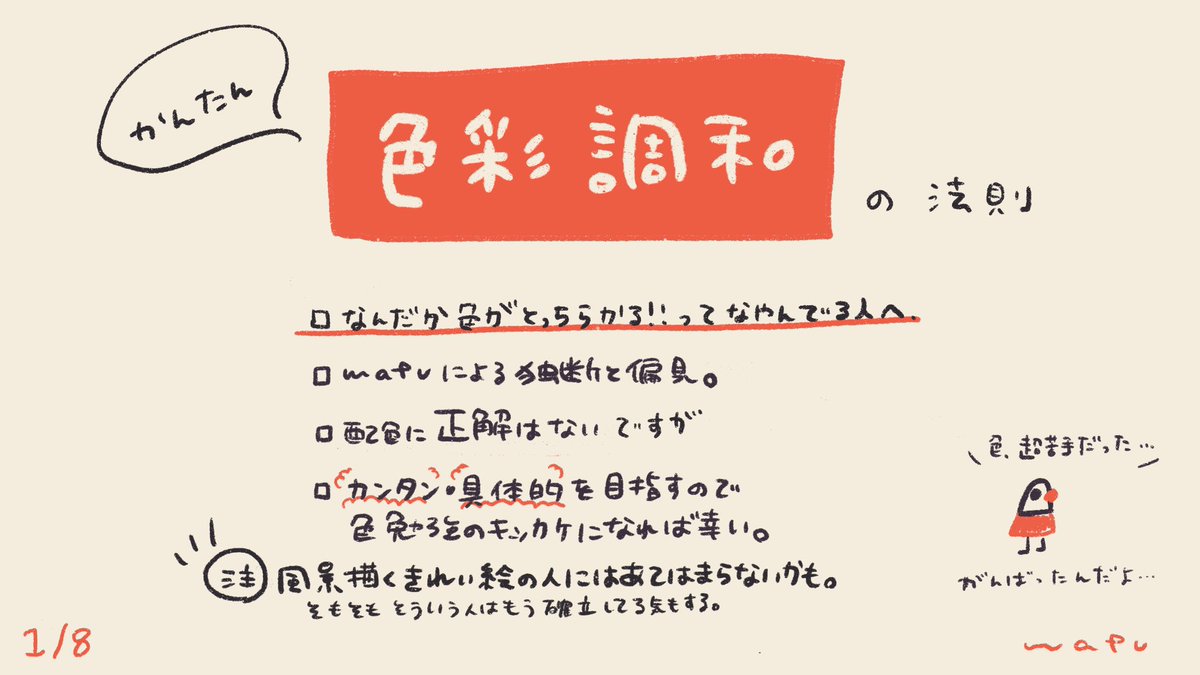 かんたん
色彩調和
の法則
□ なんだか色がとっちらかる!!ってなやんでる人へ.
□ mapuによる独断と偏見。
□ 配色に正解はないですが
□ カンタン・具体的を目指すので
色勉強のキッカケになれば幸い。
注 風景描くきれい絵の人にはあてはまらないかも。
そもそもそういう人はもう確立してる気もする。
色、超苦手だった…
がんばったんだよ…
1/8
mapu